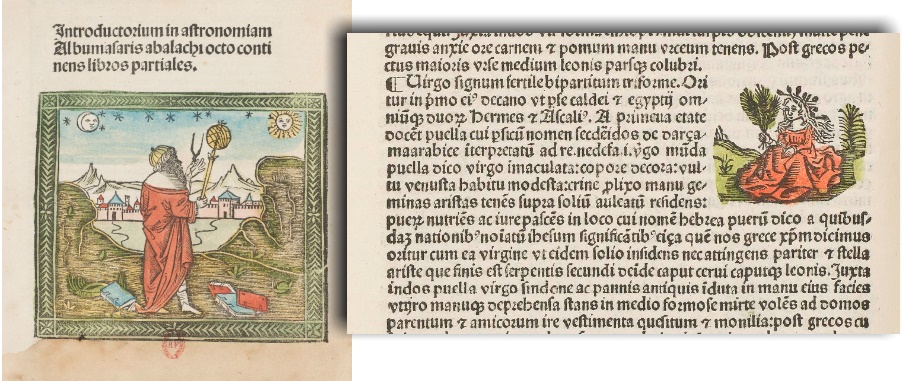 Introductorium in astronomiam
Albumasaris abalachi octo conti
nens libros partiales.
grauis anxie ore carnem ⁊ pomum manu vrceum tenens. Post grecos pe-
ctus maioris vrse medium leonis parsqꝫ colubri.
Uirgo signum fertile bipartitum triforme. Ori
tur in pͥmo eiꝰ decano vt pſe caldei ⁊ egyptij om-
niūqꝫ duoꝝ Hermes ⁊ Aſcaliꝰ. A primeua etate
docēt puella cui pſicū nomen secdēidos de darça-
ma arabice īterpretatū
puella dico virgo imaculata: corpore decora: vul-
tu venusta habitu modesta: crine plixo manu ge-
minas aristas tenēs supra soliū auleatū residens:
pueꝝ nutriēs ac iure pascēs in loco cui nomē hebrea puerū dico a quibus-
daꝫ nationibꝰ noīatū ihesum significātibꝰ eiça quē nos grece xp̄m dicimus
oritur cum ea virgine vir eidem solio insidens nec attingens pariter ⁊ stella
ariste que finis est serpentis secundi deide caput cerui caputqꝫ leonis. Juxta
indos puella virgo sindone ac pannis antiquis iduta in manu eius facies
manuqꝫ deprehensa stans in medio formose mirte volēs ad domos
parentum ⁊ amicorum ire vestimenta quesitum ⁊ monilia: post grecos cu